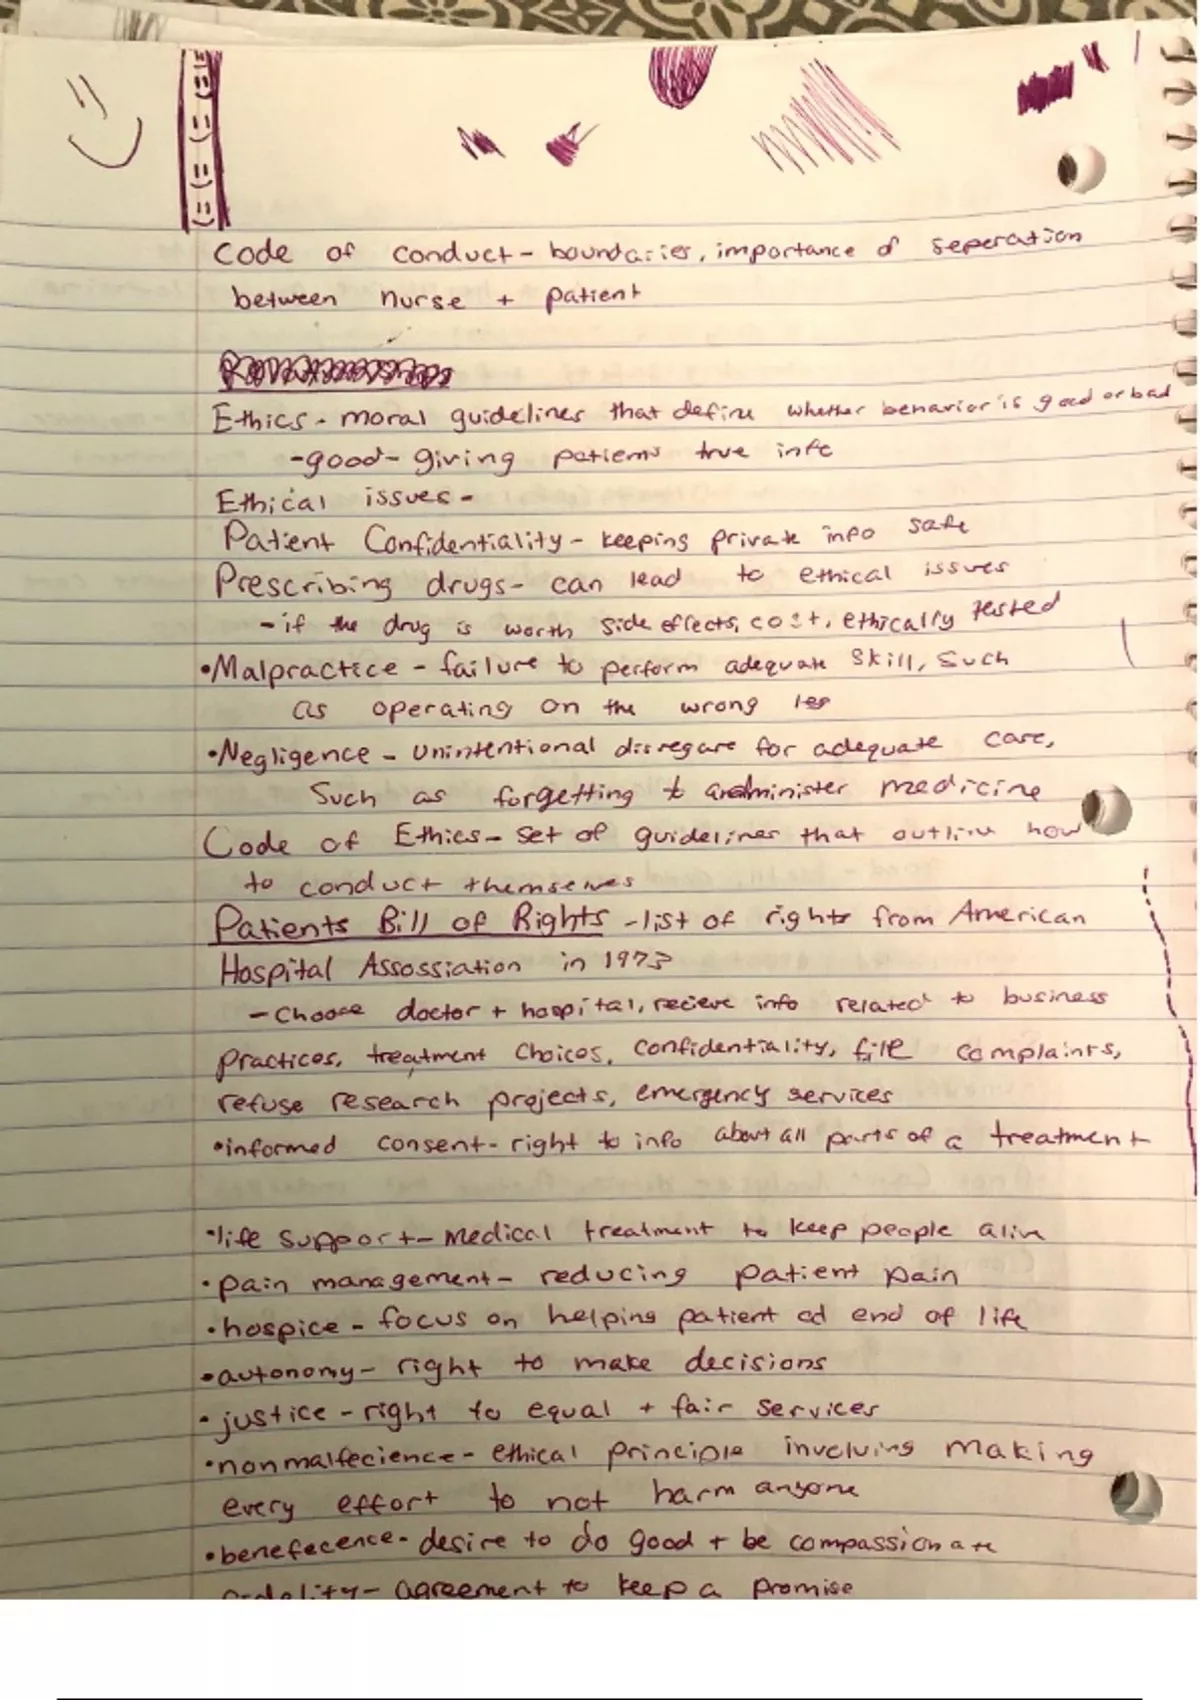 Code of conduct - boundaries, importance of seperation
between nurse + patient
Ethics - moral guidelines that define whether behavior is good or bad
-good- giving patients true info
Ethical issues -
Patient Confidentiality - keeping private info safe
Prescribing drugs - can lead to ethical issues
- if the drug is worth side effects, cost, ethically tested
•Malpractice - failure to perform adequate skill, such
as operating on the wrong leg
•Negligence - unintentional disregard for adequate care,
Such as forgetting to administer medicine
Code of Ethics - set of guidelines that outline how
to conduct themselves
Patients Bill of Rights - list of rights from American
Hospital Assossiation in 1973
- Choose doctor + hospital, recieve info related to business
practices, treatment choices, confidentiality, file complaints,
refuse research projects, emergency services
•informed consent - right to info about all parts of a treatment
•life support - medical treatment to keep people alive
•pain management - reducing patient pain
•hospice - focus on helping patient at end of life
•autonomy - right to make decisions
•justice - right to equal + fair services
•nonmalfecience - ethical principle involving making
every effort to not harm anyone
•benefecence - desire to do good + be compassionate
- agreement to keep a promise